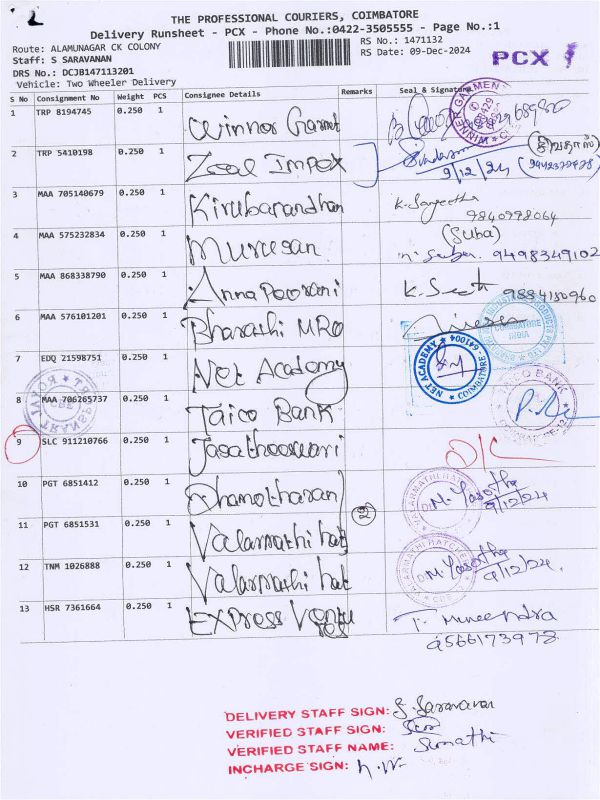 2
THE PROFESSIONAL COURIERS, COIMBATORE
Delivery Runsheet - PCX - Phone No.:0422-3505555 - Page No.:1
Route: ALAMUNAGAR CK COLONY
RS No.: 1471132
Staff: S SARAVANAN
RS Date: 09-Dec-2024
PCX
DRS No.: DCJB147113201
Vehicle: Two Wheeler Delivery
S No Consignment No Weight PCS Consignee Details Remarks Seal & Signature
1 TRP 8194745 0.250 1 Winnor Garmet
2 TRP 5410198 0.250 1 Zeal Impex 9/12/24
3 MAA 705140679 0.250 1 Kirubanandhan K. Sangeetha
9840998064
4 MAA 575232834 0.250 1 Murugan (Suba)
9498349102
5 MAA 868338790 0.250 1 Annapoorani
6 MAA 576101201 0.250 1 Bharathi MRO
COIMBATORE
INDIA
7 EDQ 21598751 0.250 1 Net Academy
NET ACADEMY COIMBATORE - 641004
8 MAA 706265737 0.250 1 Taico Bank
TAICO BANK
ROYAL TRANSPORT
9 SLC 911210766 0.250 1 D/L
10 PGT 6851412 0.250 1 Dhamotharan M. Yasotha
9/12/24
11 PGT 6851531 0.250 1 Valarmathi hat
12 TNM 1026888 0.250 1 Valarmathi hat M. Yasotha
9/12/24.
13 HSR 7361664 0.250 1 Express T. Muneendra
9566173978
DELIVERY STAFF SIGN: S. Saravanan
VERIFIED STAFF SIGN:
VERIFIED STAFF NAME: Sumathi
INCHARGE SIGN: